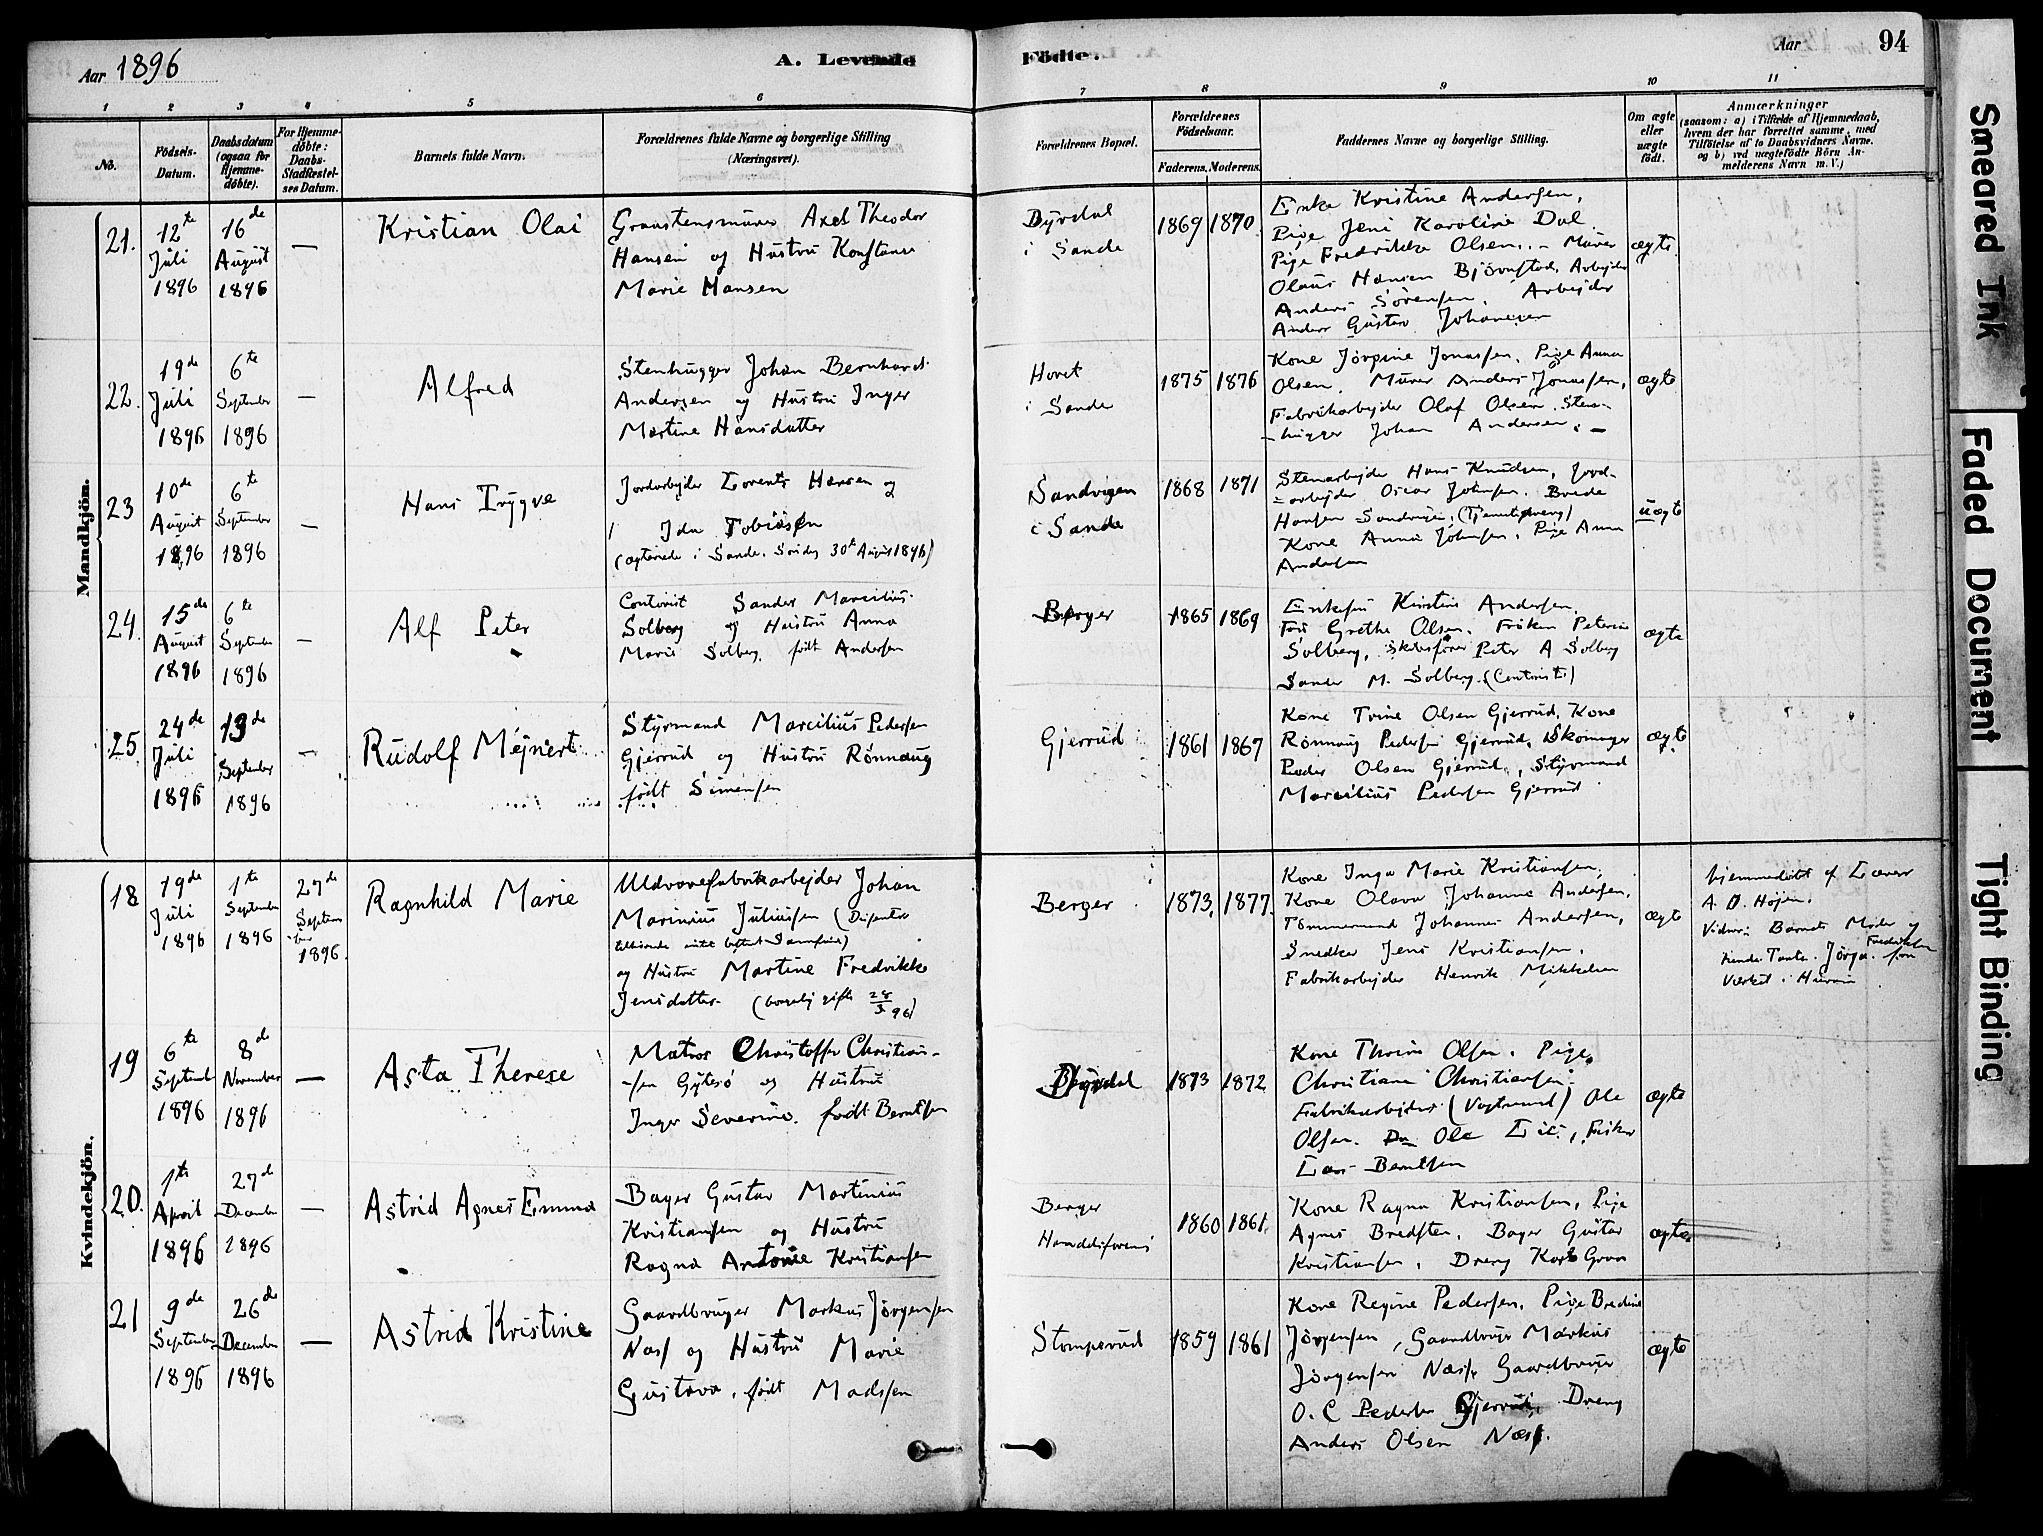 Aar 1896
A. Levende
Födte.
Aar
94
1 2 3 4 5 6 7 8 9 10 11
No.
Födsels-Datum.
Daabsdatum (ogsaa for Hjemme-döbte).
For Hjemme-döbte: Daabs-Stadfæstel-ses Datum.
Barnets fulde Navn.
Forældrenes fulde Navne og borgerlige Stilling (Næringsvei).
Forældrenes Bopæl.
Forældrenes Födselsaar.
Faderens. Moderens.
Faddernes Navne og borgerlige Stilling.
Om ægte eller uægte födt.
Anmærkninger
(saasom: a) i Tilfælde af Hjemmedaab,
hvem der har forrettet samme, med
Tilföielse af to Daabsvidners Navne,
og b) ved uægtefödte Börn An-
melderens Navn m. V.)
Mandkjön.
21.
12te Juli 1896
16de August 1896
—
Kristian Olai
Graastensmurer Axel Theodor
Hansen og Hustru Konstanse
Marie Hansen
Dyrdal
i Sande
1869 1870
Enke Kristine Andersen,
Pige Jeni Karoline Dal
Pige Fredrikke Olsen, - Murer
Olaus Hansen Björnstad, Arbejder
Anders Sörensen, Arbejder
Anders Gustav Johansen
ægte
22.
19de Juli 1896
6te September 1896
—
Alfred
Stenhugger Johan Bernhard
Andersen og Hustru Inger
Martine Hansdatter
Hovet
i Sande
1875 1876
Kone Jörgine Jonassen, Pige Anna
Olsen, Murer Anders Jonassen,
Fabrikarbejder Olaf Olsen, Sten-
hugger Johan Andersen. —
ægte
23
10de August 1896
6te September 1896
—
Hans Trygve
Jordarbejder Lorents Hansen og
Ida Tobiasen
(ægteviede i Sande, Söndag 30te August 1896)
Sandvigen
i Sande
1868 1871
Stenarbejder Hans Knudsen, Jord-
arbejder Oscar Johnsen. Brede
Hansen Sandvigen, (Tjenestedreng)
Kone Anna Johnsen, Pige Anna
Andersen
uægte
24.
15de August 1896
6te September 1896
—
Alf Peter
Contorist Sander Marcilius
Solberg og Hustru Anna
Marie Solberg, født Andersen
Berger
1865 1869
Enkefru Kirstine Andersen,
Fru Grethe Olsen. Fröken Peterine
Solberg, Skibsförer Peter A Solberg
Sander M. Solberg. (Contorist)
ægte
25
24de Juli 1896
13de September 1896
—
Rudolf Mejnert
Styrmand Marcilius Pedersen
Gjerrud og Hustru Rönnaug
født Simensen
Gjerrud
1861 1867
Kone Trine Olsen Gjerrud, Kone
Rønnaug Pedersen Gjerrud, Skomager
Peder Olsen Gjerrud, Styrmand
Marcilius Pedersen Gjerrud
ægte
Kvindekjön.
18
19de Juli 1896
1te September 1896
27de September 1896.
Ragnhild Marie
Uldvarefabrikarbejder Johan
Marinius Juliussen (Dissenter
og Hustru Martine Fredrikke
Jensdatter (borgerlig gifte 28/3 96)
Berger
1873. 1877.
Kone Inga Marie Kristiansen,
Kone Olava Johanne Andersen,
Tömmermand Johannes Andersen,
Snedker Jens Kristiansen.
Fabrikarbejder Henrik Mikkelsen
ægte
hjemmedöbt af Lærer
A. D. Højen.
Vidner: Barnets Moder og
hendes Tante Jörga. Fredriksen fra
Værket i Hurum
19
6te September 1896
8de November 1896
—
Asta Therese
Matros Christoffer Christian-
sen Gytesø og Hustru
Inger Severine, født Berntsen
Dyrdal
1873 1872
Kone Thrine Olsen. Pige
Christiane Christiansen
Fabrikarbejder (Vegtmand) Ole
Olsen. Ole Lie, Fisker
Lars Berntsen
ægte
20.
1te April 1896
27de December 1896
—
Astrid Agnes Emma
Bager Gustav Martinius
Kristiansen og Hustru
Ragna Antonie Kristiansen
Berger
Handelsforenig
1860 1861.
Kone Ragna Kristiansen, Pige
Agnes Bredsten, Bager Gustav
Kristiansen, Dreng Karl Gran
ægte
21
9de September 1896
26de December 1896
—
Astrid Kristine
Gaardbruger Markus Jörgensen
Næss og Hustru Marie
Gustava, født Madssen
Stomperud
1859 1861
Kone Regine Pedersen, Pige Bredine
Jörgensen, Gaardbruger Markus
Jörgensen Næss, Gaardbruger
O. C Pedersen Gjerrud, Dreng
Anders Olsen Næss.
ægte
Smeared Ink
Faded Document
Tight Binding